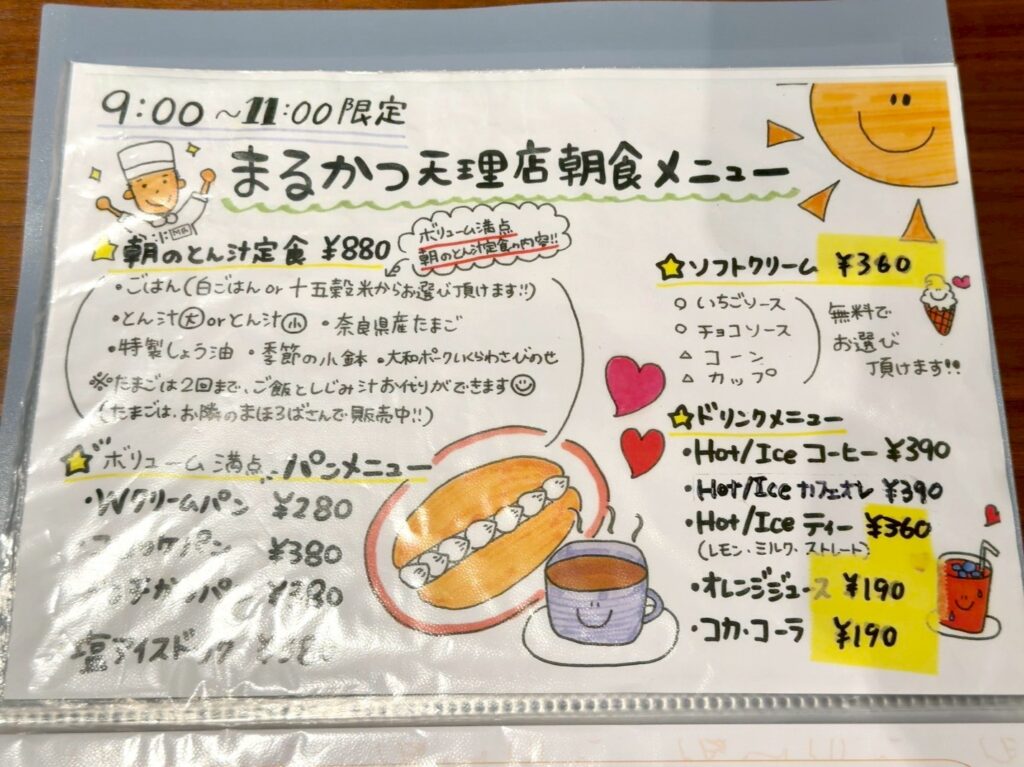 9:00~11:00限定
まるかつ天理店朝食メニュー
朝のとん汁定食 ¥880
ボリューム満点
朝のとん汁定食の内容!!
・ごはん(白ごはん or 十五穀米からお選び頂けます!!)
・とん汁大orとん汁小 ・奈良県産たまご
・特製しょう油 ・季節の小鉢 ・大和ポークいくらわさびのせ
※たまごは2回まで、ご飯としじみ汁お代りができます
(たまごは、お隣のまほろばさんで販売中!!)
ボリューム満点 パンメニュー
・Wクリームパン ¥280
パン ¥380
パ
塩アイスドック
ソフトクリーム ¥360
○ いちごソース
○ チョコソース
△ コーン
△ カップ
無料で
お選び
頂けます!!
ドリンクメニュー
・Hot/Ice コーヒー ¥390
・Hot/Ice カフェオレ ¥390
・Hot/Ice ティー ¥360
(レモン・ミルク・ストレート)
・オレンジジュース ¥190
・コカ・コーラ ¥190